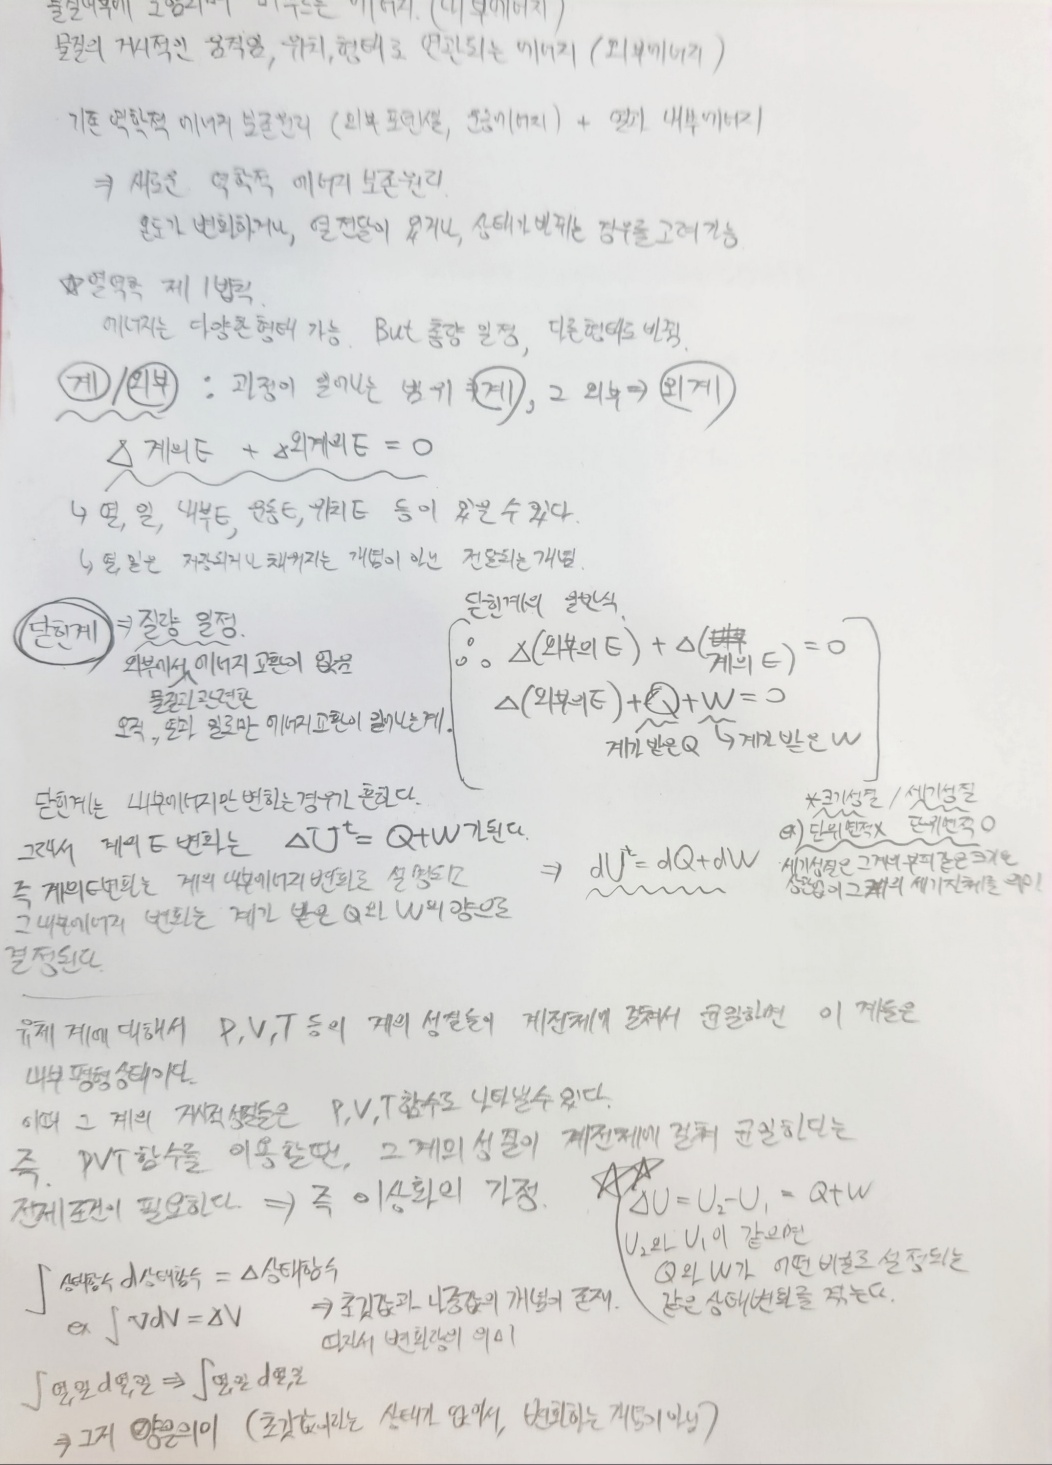 물질의 거시적인 움직임, 위치, 형태로 연관되는 에너지 (외부에너지)
기존 역학적 에너지 보존원리 (외부 포텐셜, 운동에너지) + 열과 내부에너지
⇒ 새로운 역학적 에너지 보존원리.
온도가 변화하거나, 열전달이 있거나, 상태가 바뀌는 경우를 고려가능
☆열역학 제 1법칙.
에너지는 다양한 형태 가능. But 총량 일정, 다른형태로 바뀜.
계/외부 : 과정이 일어나는 범위 ⇒ 계, 그 외부⇒ 외계
Δ 계의E + Δ외계의E = 0
↳ 열, 일, 내부E, 운동E, 위치E 등이 있을 수 있다.
↳ 열,일은 저장되거나 채워지는 개념이 아닌 전달되는 개념.
닫힌계 ⇒ 질량 일정.
외부에서 에너지 교환이 없음
물질과 관련한
오직, 열과 일로만 에너지교환이 일어나는계.
닫힌계의 일반식.
∴ Δ(외부의E) + Δ(계의E) = 0
Δ(외부의E)+Q+W=0
계가 받은Q ↳계가 받은W
닫힌계는 내부에너지만 변하는경우가 흔하다.
그래서 계의E 변화는 ΔUᵗ= Q+W가된다.
⇒ dUᵗ= dQ+dW
즉 계의E변화는 계의 내부에너지변화로 설명되고
그 내부에너지 변화는 계가 받은 Q와 W의 양으로
결정된다.
*크기성질 / 세기성질
ex) 단위면적X 단위면적O
유체 계에 대해서 P,V,T 등의 계의 성질들이 계전체에 걸쳐서 균일하면 이 계들은
내부 평형상태이다.
이때 그 계의 거시적성질들은 P,V,T함수로 나타낼수있다.
즉, PVT함수를 이용할땐, 그 계의 성질이 계전체에 걸쳐 균일하다는
전제조건이 필요하다. ⇒ 즉 이상화의 가정.
☆☆
ΔU = U₂-U₁ = Q+W
U₂와 U₁이 같으면
Q와 W가 어떤 비율로 설정되는
같은 상태변화를 겪는다.
∫상태함수 d상태함수 = Δ상태함수
ex ∫VdV = ΔV
⇒ 초깃값과 나중값의 개념이 존재.
따라서 변화량의 의미
∫열,일 d열,일 ⇒ ∫열,일 d열,일
⇒ 그저 양을의미 (초깃값이라는 상태가 없어서, 변화하는 개념이아님)